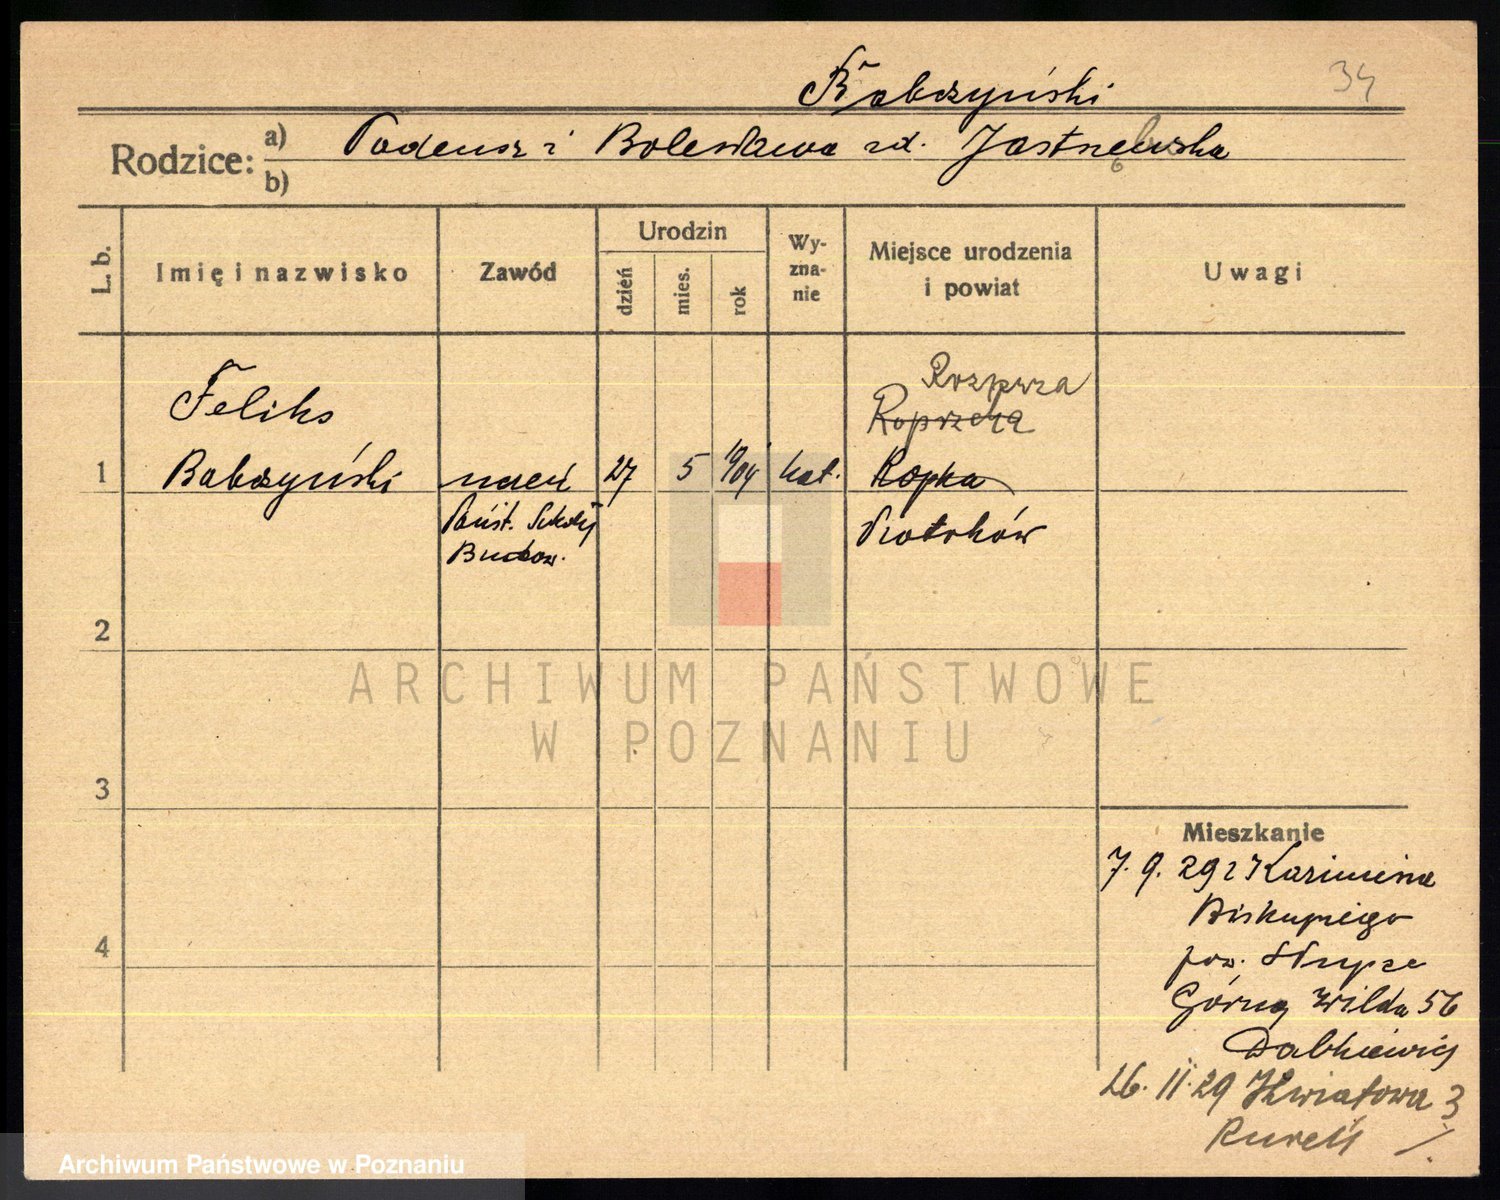 Babczyński
34
Rodzice: a) Tadeusz i Bolesława zd. Jastrzębska
b)
L. b.
Imię i nazwisko
Zawód
Urodzin
dzień
mies.
rok
Wy-
zna-
nie
Miejsce urodzenia
i powiat
Uwagi
Rozprza
Feliks
Roprzcka
1 Babczyński uczeń 27 5 1904 kat. Kopka
Państ. Szkoły
Budow. Piotrków
2
ARCHIWUM PAŃSTWOWE
W POZNANIU
3
Mieszkanie
7. 9. 29 z Kazimierza
Biskupiego
pow. Słupca
4
Górna Wilda 56
26. 11. 29 Kwiatowa 3
Archiwum Państwowe w Poznaniu